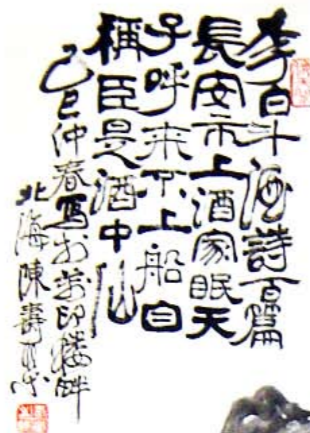 李白斗酒詩百篇
長安市上酒家眠天
子呼來不上船自
稱臣是酒中仙
己巳仲春寫於萬印樓畔
北海陳壽榮